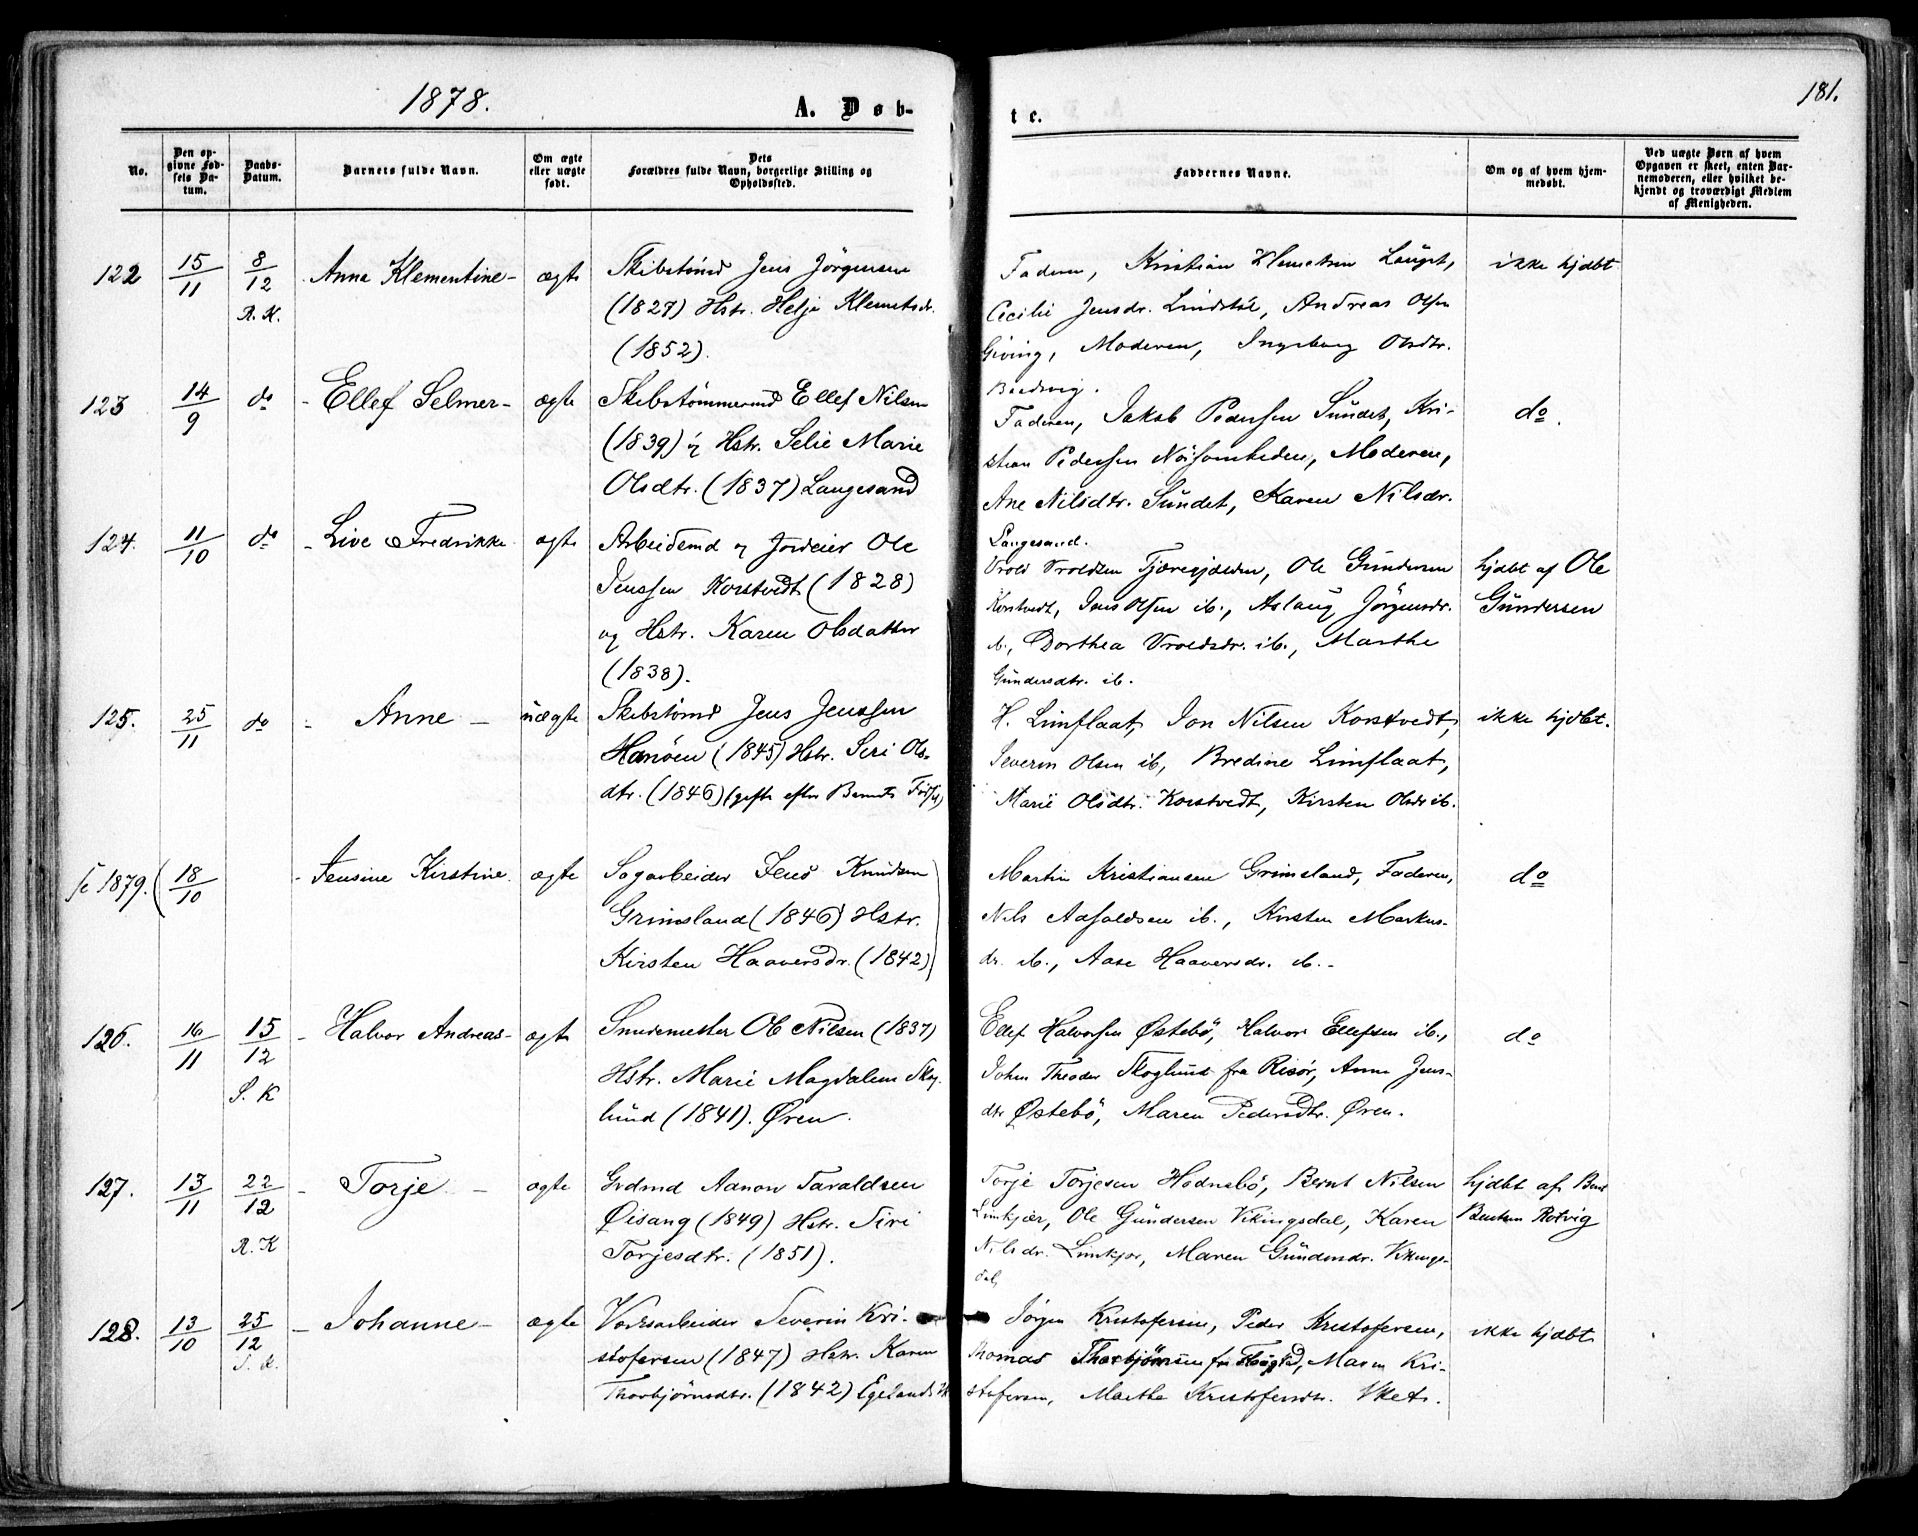 1878.
A. Døb-
te.
181.
No.
Den op-
givne Fød-
sels Da-
tum.
Daabs-
Datum.
Barnets fulde Navn.
Om ægte
eller uægte
født.
Dets
Forældres fulde Navn, borgerlige Stilling og
Opholdssted.
Faddernes Navne.
Om og af hvem hjem-
medøbt.
Ved uægte Børn af hvem
Opgaven er skeet, enten Bar-
nemoderen, eller hvilket be-
kjendt og troværdigt Medlem
af Menigheden.
122 15/11 8/12 R. K. Anna Klementine - ægte
Skibstømd Jens Jörgensen
(1827) Hstr. Helje Klemetsdr.
(1852).
Faderen, Kristian Klemetsen Lauget,
Cecilie Jensdr. Lindstøl, Andreas Olsen
Giving, Moderen, Ingeborg Olsdtr.
Bosvig.
ikke hjdbt
123 14/9 do - Ellef Selmer - ægte
Skibstømmermd Ellef Nilsen
(1839) og Hstr. Selie Marie
Olsdtr. (1837) Langesand
Faderen, Jakob Pedersen Sundet, Kri-
stian Pedersen Nøisomheden, Moderen,
Ane Nilsdtr. Sundet, Karen Nilsdr.
Langesand.
do.
124. 11/10 do - Live Fredrikke ægte
Arbeidsmd og Jordeier Ole
Jenssen Korstvedt (1828)
og Hstr. Karen Olsdatter
(1838).
Vrold Vroldsen Tjæregjælden, Ole Gundersen
Korstvedt, Jens Olsen ib., Aslaug Jørgensdr.
ib., Dorthea Vroldsdr. ib., Marthe
Gundersdtr. ib.
hjdbt af Ole
Gundersen
125. 25/11 do - Anne - uægte
Skibstømd Jens Jenssen
Hanøen (1845) Hstr. Seri Ols-
dtr. (1846) (gift efter Barnets Fødsel)
H. Limflaat, Jon Nilsen Korstvedt,
Severin Olsen ib, Bredine Limflaat,
Marie Olsdtr. Korstvedt, Kirsten Olsdr ib.
ikke hjdbt.
se 1879. ( 18/10 - Jensine Kirstine ægte
Sagarbeider Jens Knudsen
Grimsland (1846) Hstr.
Kirsten Haaversdr. (1842)
Martin Kristiansen Grimsland, Faderen,
Nils Adsoldsen ib., Kirsten Markus-
dr. ib., Aase Haaversdr. ib. -
do
126. 16/11 15/12 S. K - Halvor Andreas - ægte
Smedemester Ole Nilsen (1837)
Hstr. Marie Magdalene Skog-
lund (1841). Øren.
Ellef Halvorsen Østebø, Halvor Ellefsen ib.,
John Theodor Skoglund fra Risør, Anne Jens-
dtr Østebö, Maren Pedersdtr. Øren.
do
127. 13/11 22/12 R. K - Torje - ægte
Grdmd Aanon Taraldsen
Øisang (1849) Hstr. Siri
Torjesdtr. (1851).
Torje Torjesen Hodnebö, Bernt Nilsen
Limkjær, Ole Gundersen Vikingsdal, Karen
Nilsdr. Limkjær, Maren Gundersdr. Vikings-
dal,
hjdbt af Bent
Bentsen Rotvig
128. 13/10 25/12 S. K. - Johanne - ægte
Værksarbeider Severin Kri-
stofersen (1847) Hstr. Karen
Thorbjørnsdtr. (1842) Egelands Vk
Jørgen Kristofersen, Peder Kristofersen,
Thomas Thorbjörnsen fra Skogstad, Maren Kri-
stofersen, Marthe Kristofersdtr. Vket.
ikke hjdbt